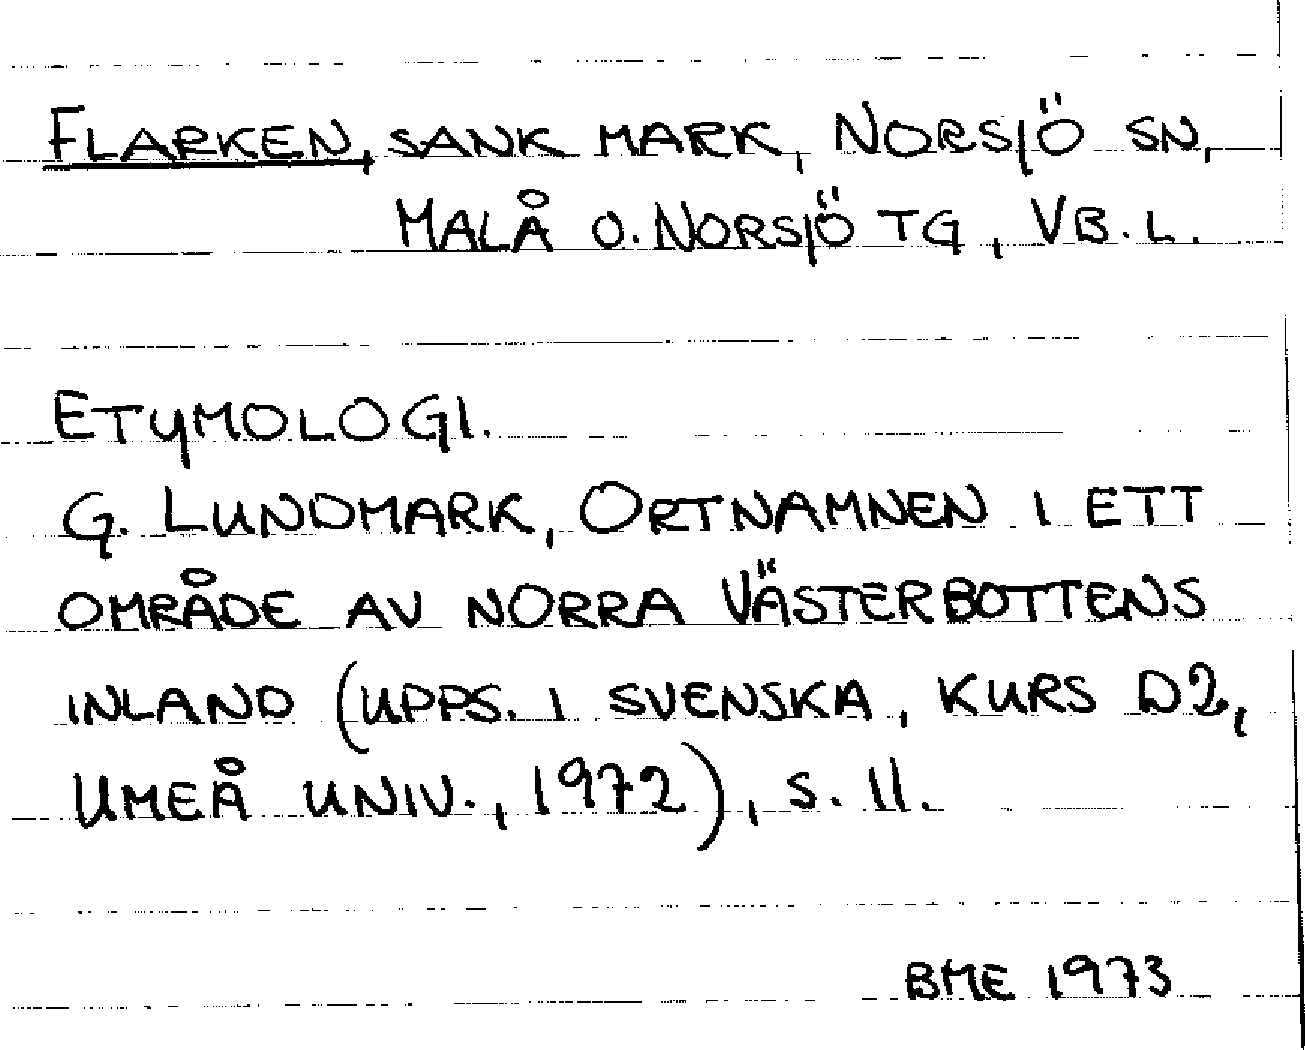 FLARKEN, SANK MARK, NORSJÖ SN,
MALÅ O. NORSJÖ TG, VB. L.
ETYMOLOGI.
G. LUNDMARK, ORTNAMNEN I ETT
OMRÅDE AV NORRA VÄSTERBOTTENS
INLAND (UPPS. I SVENSKA, KURS D2,
UMEÅ UNIV., 1972), S. 11.
BME 1973